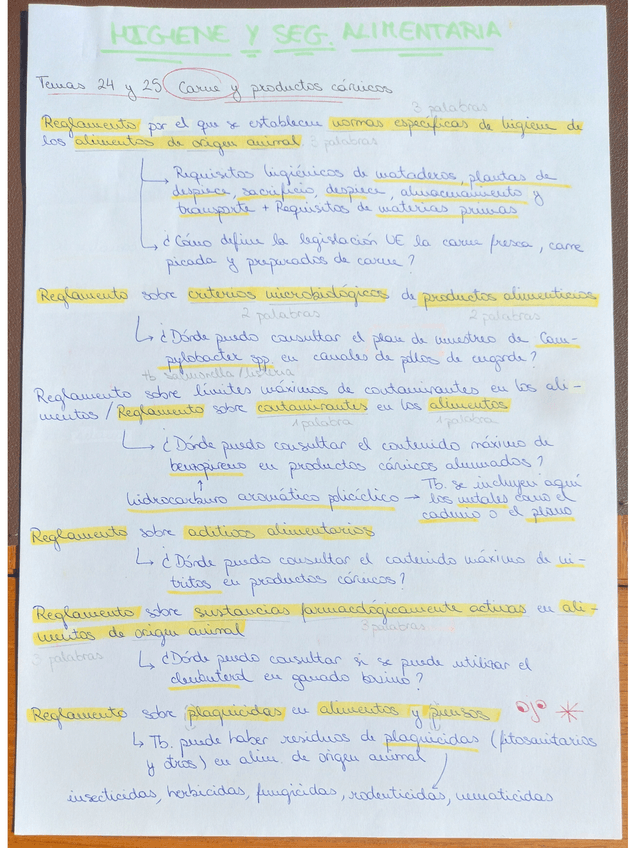 HIGIENE Y SEG. ALIMENTARIA
Temas 24 y 25 Carne y productos cárnicos
3 palabras
Reglamento por el que se establecen normas específicas de higiene de
los alimentos de origen animal 3 palabras
Requisitos higiénicos de mataderos, plantas de
despiece, sacrificio, despiece, almacenamiento y
transporte + Requisitos de materias primas
¿Cómo define la legislación UE la carne fresca, carne
picada y preparados de carne?
Reglamento sobre criterios microbiológicos de productos alimenticios
2 palabras 2 palabras
¿Dónde puedo consultar el plan de muestreo de Cam-
pylobacter spp. en canales de pollos de engorde?
tb salmonella/listeria
Reglamento sobre límites máximos de contaminantes en los ali-
mentos / Reglamento sobre contaminantes en los alimentos
1 palabra 1 palabra
¿Dónde puedo consultar el contenido máximo de
benzopireno en productos cárnicos ahumados?
hidrocarburo aromático policíclico → Tb. se incluyen aquí
los metales como el
cadmio o el plomo
Reglamento sobre aditivos alimentarios
¿Dónde puedo consultar el contenido máximo de ni-
tritos en productos cárnicos?
Reglamento sobre sustancias farmacológicamente activas en ali-
mentos de origen animal 3 palabras
3 palabras
¿Dónde puedo consultar si se puede utilizar el
clenbuterol en ganado bovino?
Reglamento sobre plaguicidas en alimentos y piensos ojo *
Tb. puede haber residuos de plaguicidas (fitosanitarios
y otros) en alim. de origen animal
insecticidas, herbicidas, fungicidas, rodenticidas, nematicidas